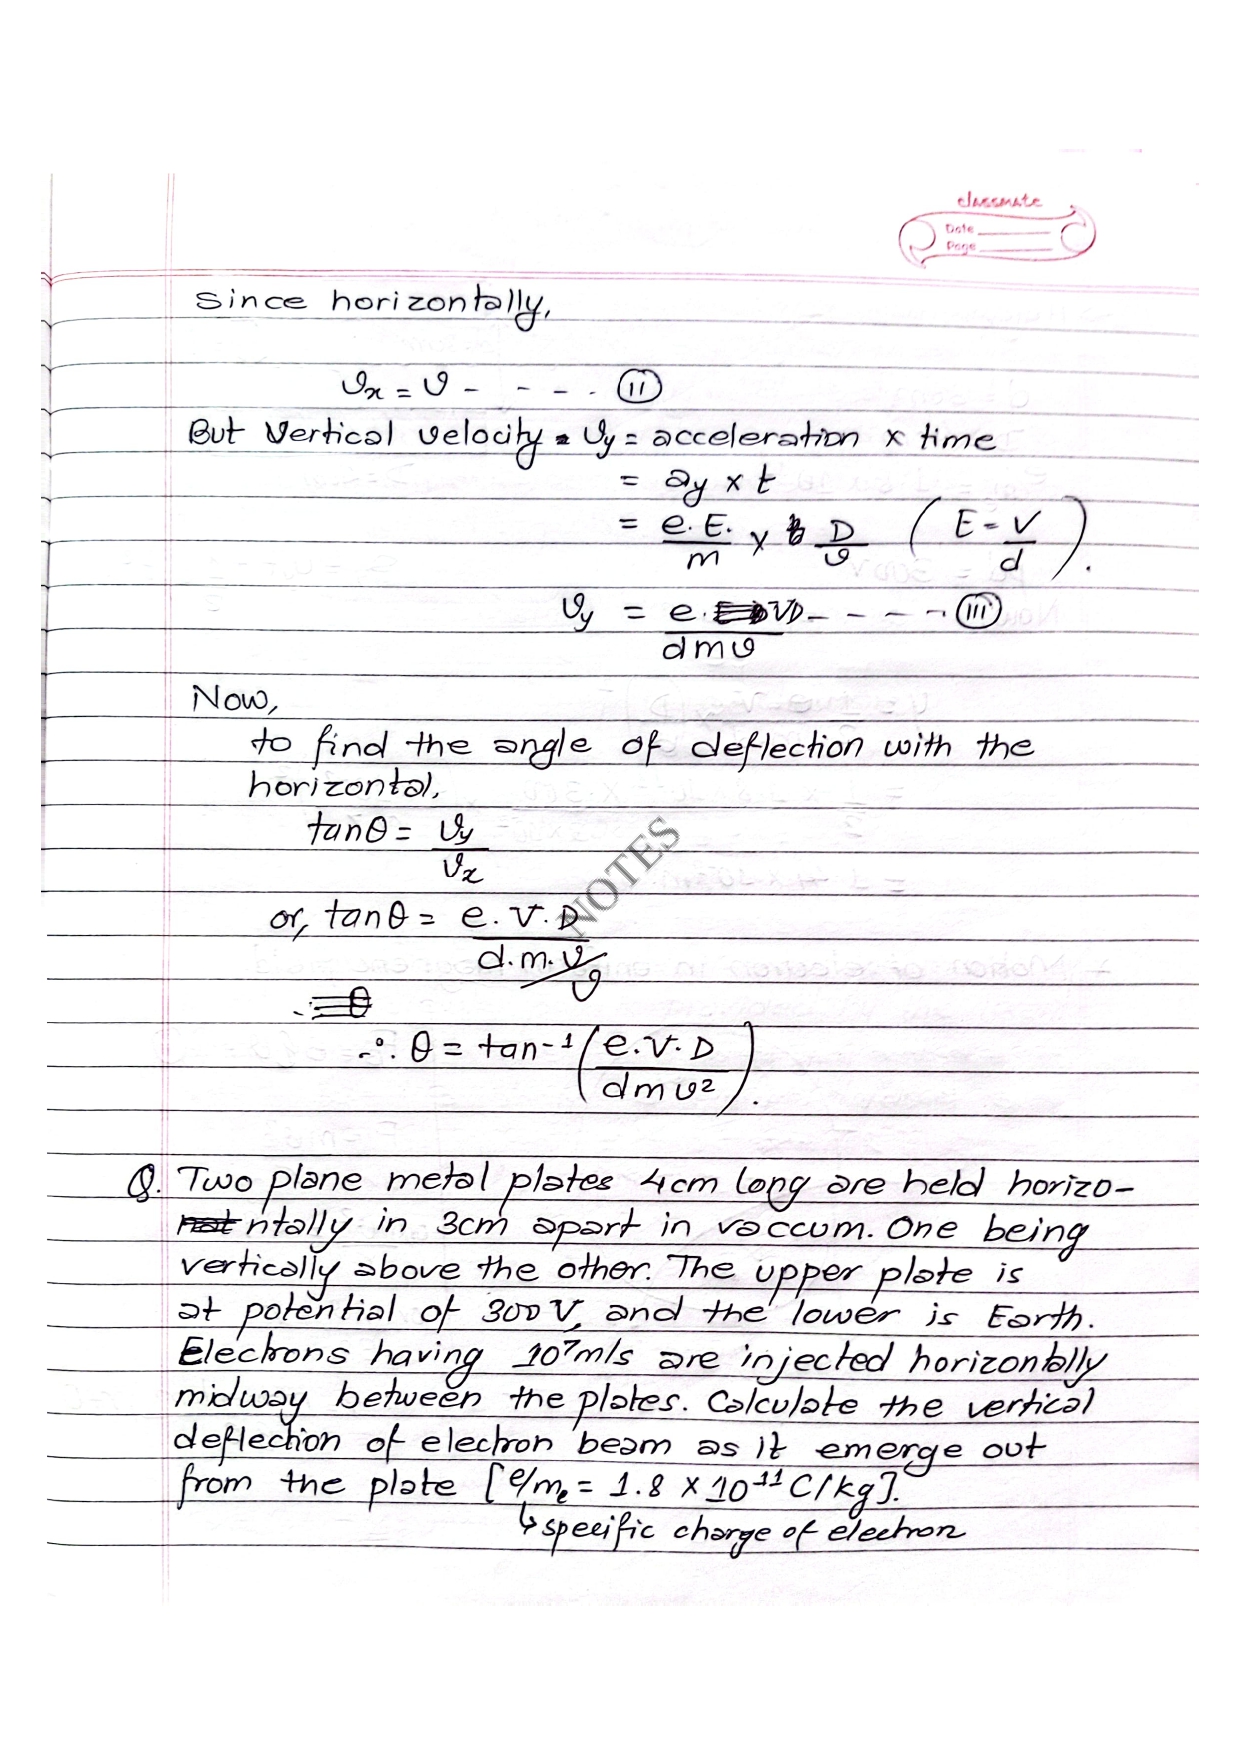 classmate
Date
Page
Since horizontally,
vx = v - - - - (II)
But Vertical velocity = vy = acceleration x time
= ay x t
= e.E./m x D/v (E = V/d).
vy = e.VD/dmv - - - - (III)
Now,
to find the angle of deflection with the
horizontal,
tanθ = vy/vx
or, tanθ = e.V.D/d.m.v/v
∴ θ = tan-1(e.V.D/dmv²).
Q. Two plane metal plates 4cm long are held horizo-
ntally in 3cm apart in vaccum. One being
vertically above the other. The upper plate is
at potential of 300V, and the lower is Earth.
Electrons having 10⁷m/s are injected horizontally
midway between the plates. Calculate the vertical
deflection of electron beam as it emerge out
from the plate [e/me = 1.8 x 10¹¹ C/kg].
↳ specific charge of electron
NOTES